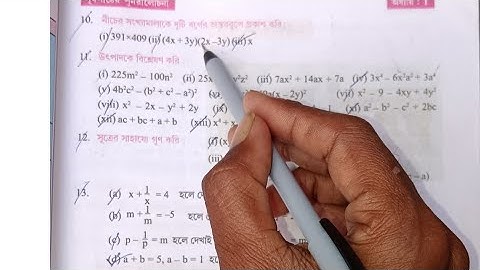 পুনরালোচনা
10. নীচের সংখ্যামালাকে দুটি বর্গের অন্তররূপে প্রকাশ করি :
(i) 391×409 (ii) (4x + 3y)(2x – 3y) (iii) x
11. উৎপাদকে বিশ্লেষণ করি :
(i) 225m² – 100n² (ii) 25x (iii) 7ax² + 14ax + 7a (iv) 3x⁴ – 6x²a² + 3a⁴
(v) 4b²c² – (b² + c² – a²)² (vii) x² – 9 – 4xy + 4y²
(viii) x² – 2x – y² + 2y (ix) (xi) a² – b² – c² + 2bc
(xii) ac + bc + a + b (xiii) x⁴ +
12. সূত্রের সাহায্যে গুণ করি : (i) (x
(iii)
– a)
13. (a) x + 1/x = 4 হলে দে
(b) m + 1/m = –5 হলে
(c) p – 1/p = m হলে দেখাই
(d) a + b = 5, a – b = 1 হলে